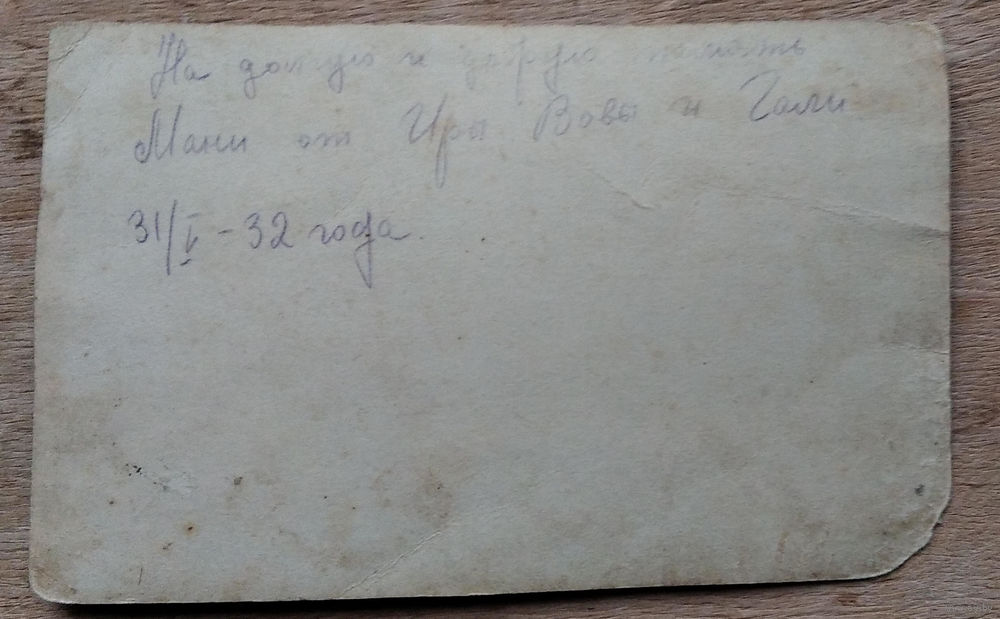 На долгую и добрую память
Мани от Иры Вовы и Гали
31/I - 32 года.